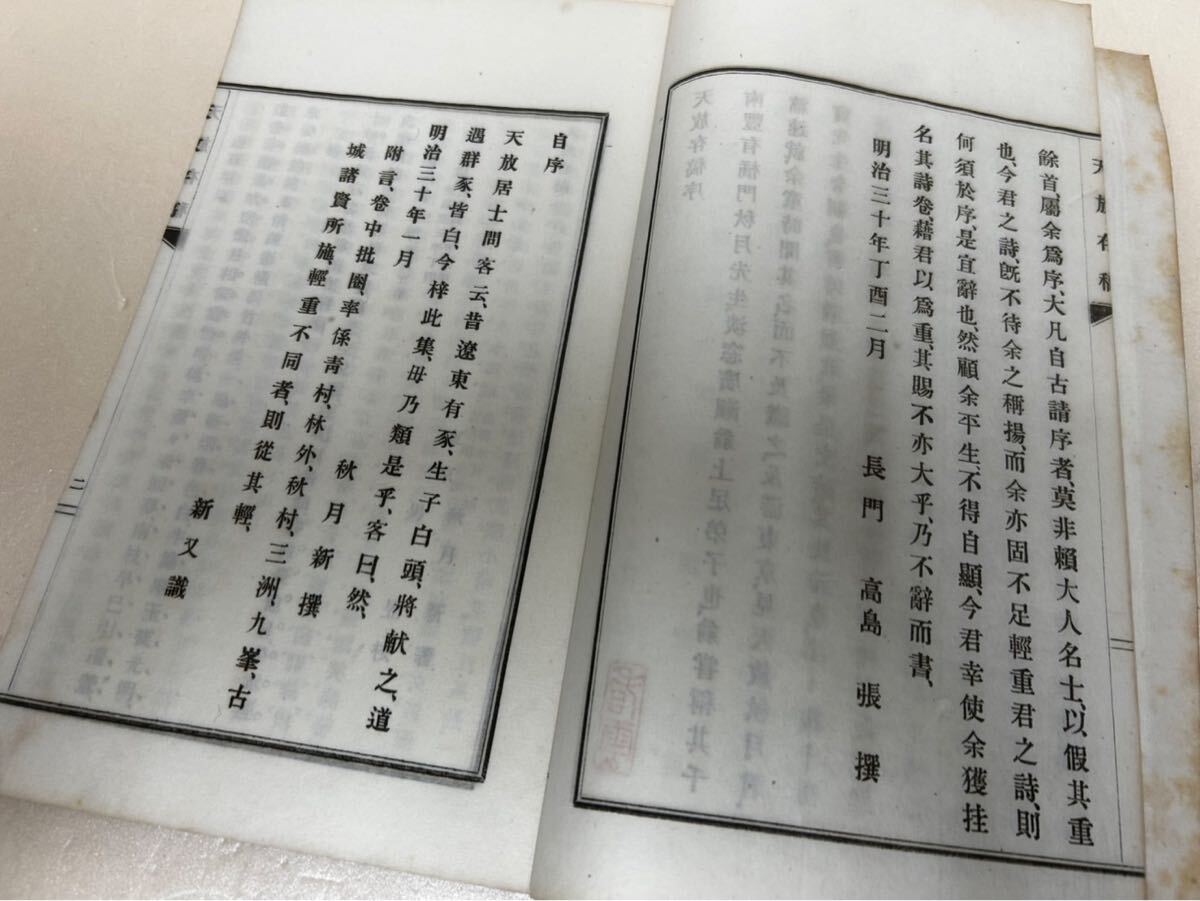 餘首、屬余爲序、大凡自古請序者、莫非賴大人名士、以假其重
也、今君之詩、既不待余之稱揚、而余亦固不足輕重君之詩、則
何須於序、是宜辭也、然顧余平生、不得自顯、今君幸使余獲挂
名其詩卷、藉君以爲重、其賜不亦大乎、乃不辭而書、
明治三十年丁酉二月　長門　高島　張　撰
天放存稿
自序
天放居士問客云、昔遼東有豕、生子白頭、將献之、道
遇群豕、皆白、今梓此集、毋乃類是乎、客曰、然、
明治三十年一月　秋月　新　撰
附言、卷中批圈、率係青村、林外、秋村、三洲、九峯、古
城諸賢所施、輕重不同者、則從其輕、
新又識
二